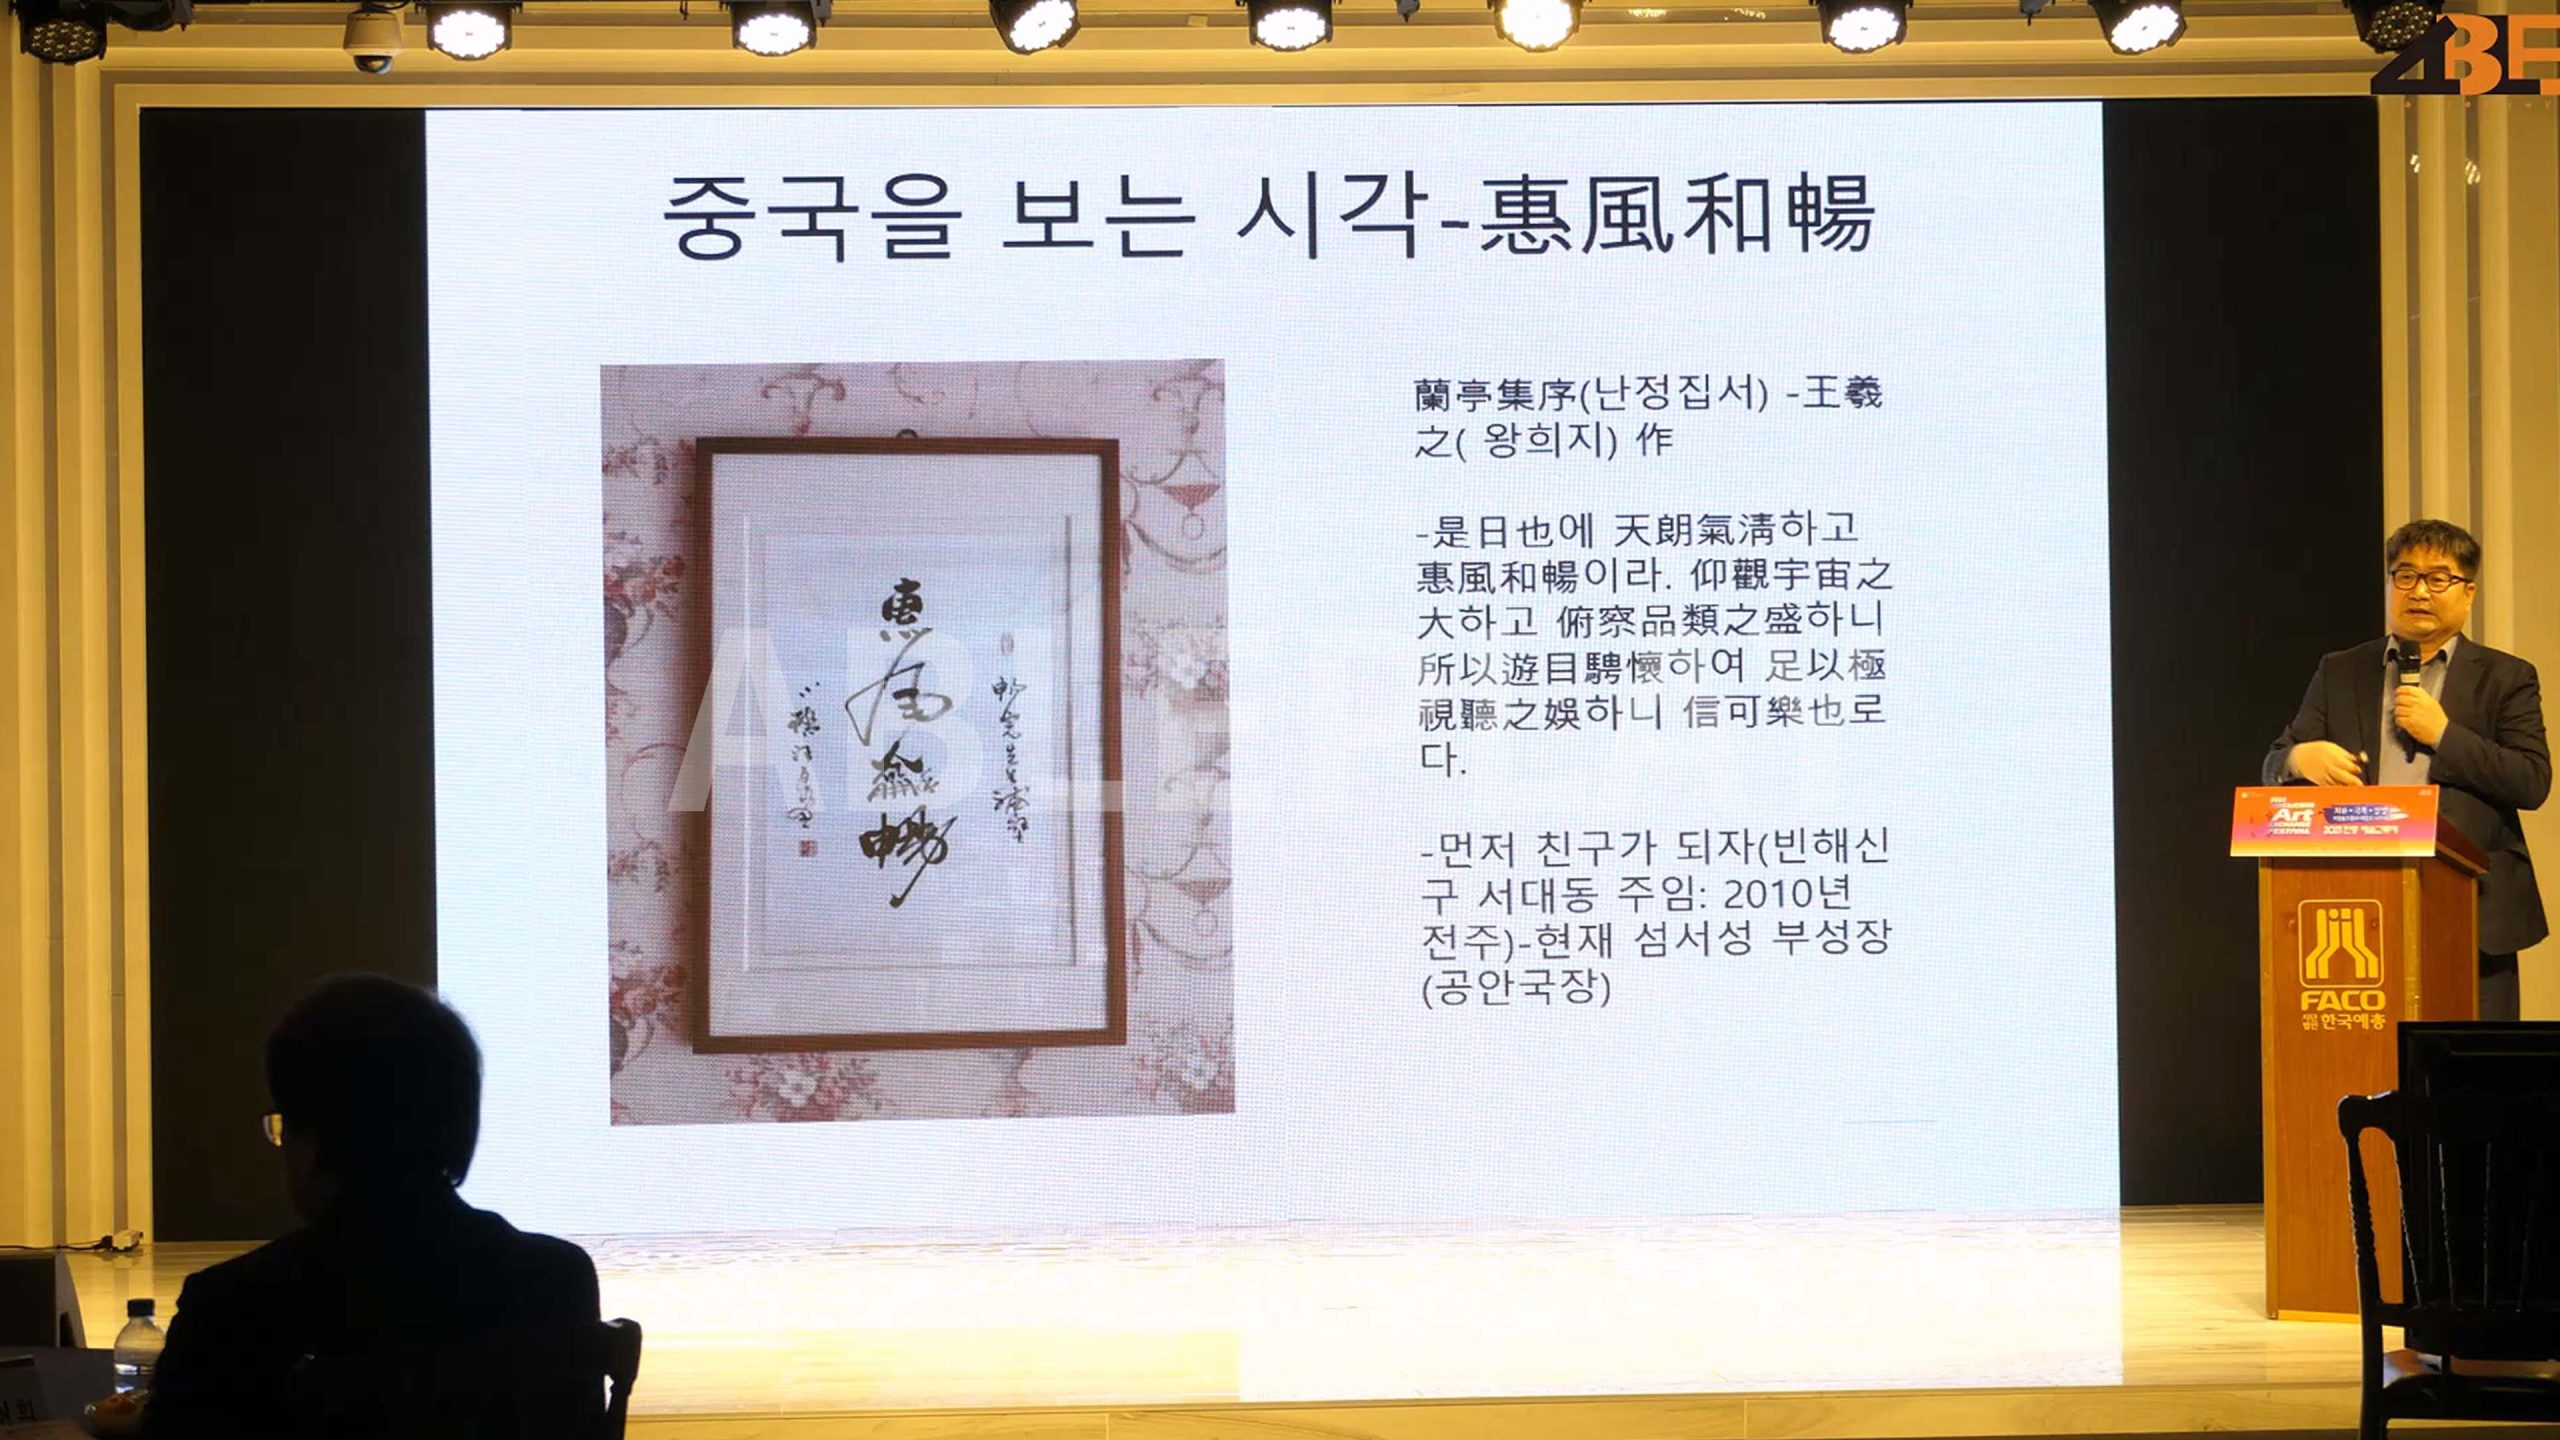 중국을 보는 시각-惠風和暢
蘭亭集序(난정집서) -王羲
之( 왕희지) 作
-是日也에 天朗氣淸하고
惠風和暢이라. 仰觀宇宙之
大하고 俯察品類之盛하니
所以遊目騁懷하여 足以極
視聽之娛하니 信可樂也로
다.
-먼저 친구가 되자(빈해신
구 서대동 주임: 2010년
전주)-현재 섬서성 부성장
(공안국장)
惠
風
和
暢
ABL
Art
FESTIVAL
FACO
한국예총